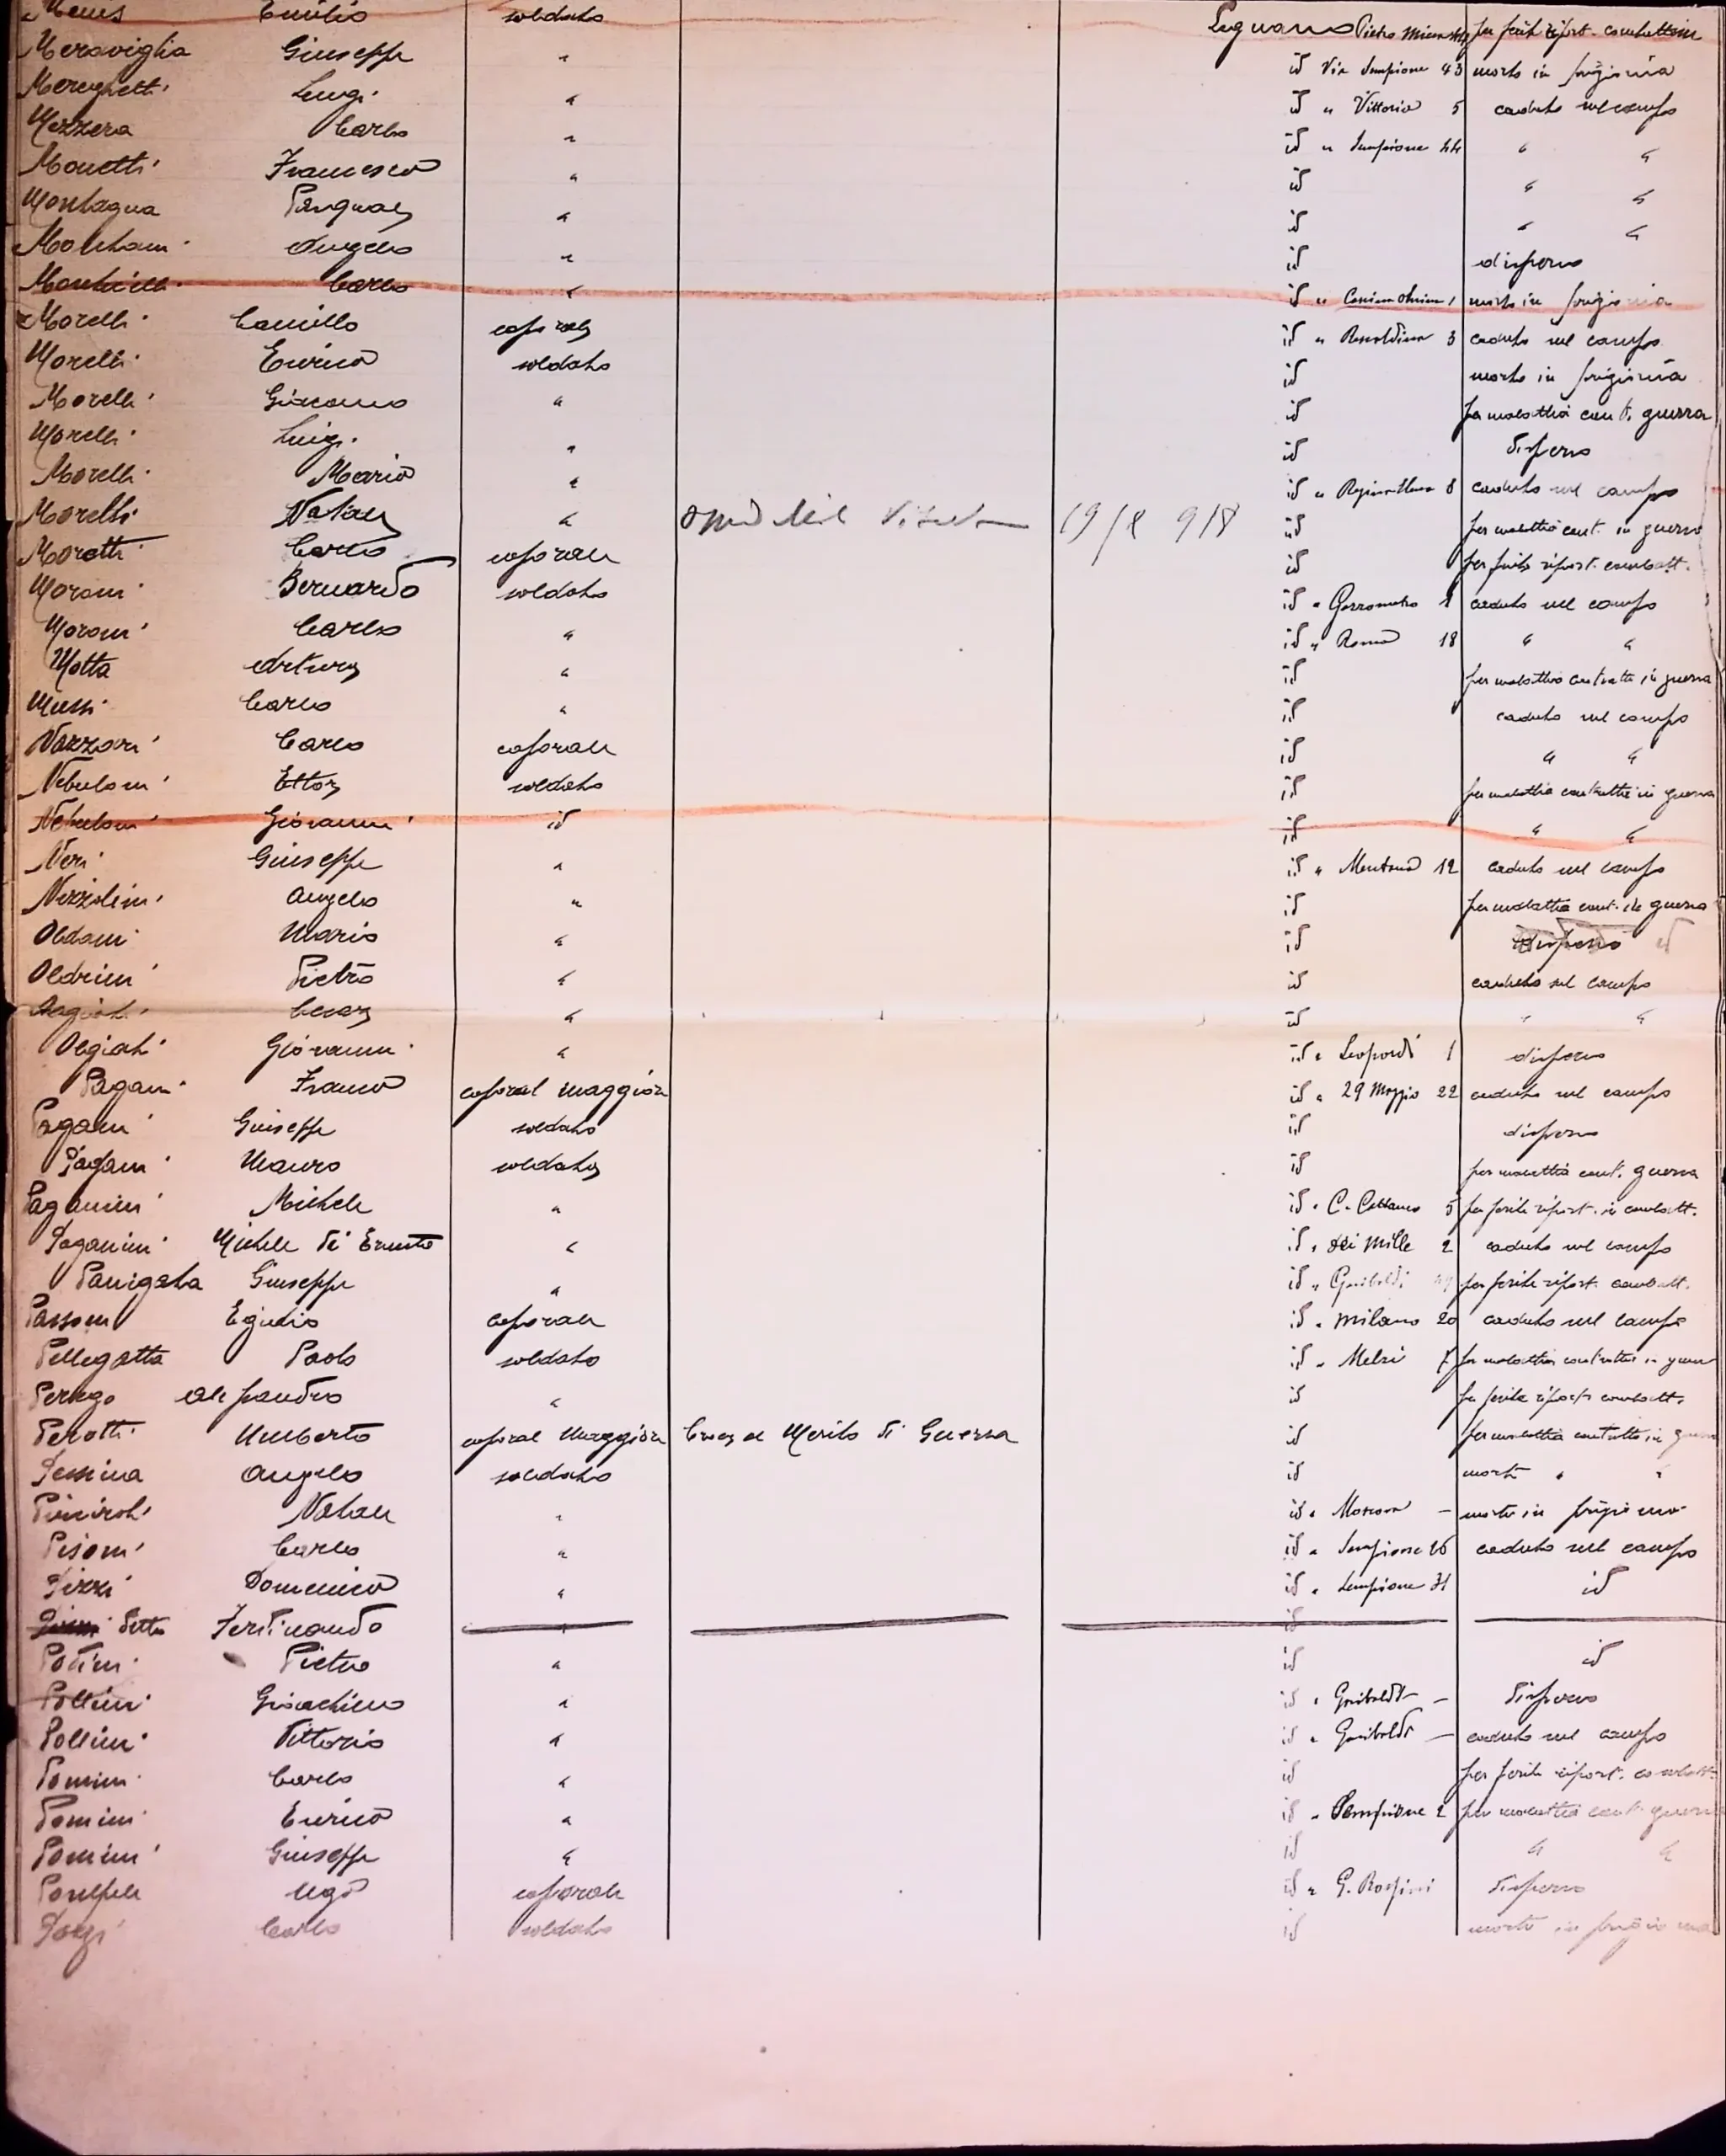 Emilio soldato Legnano Pietro per ferite riport. combattim
Meraviglia Giuseppe " id Via Sempione 43 morto in prigionia
Mereghetti Luigi " id " Vittoria 5 caduto sul campo
Mezzera Carlo " id " Sempione 44 " "
Monetti Francesco " id " "
Montagna Pasquale " id " "
Angelo " id disperso
Carlo " id " morto in prigionia
Morelli Camillo caporale id " Rasoldina 3 caduto sul campo
Morelli Enrico soldato id morto in prigionia
Morelli Giacomo " id per malattia cont. guerra
Morelli Luigi " id disperso
Morelli Mario " id " 8 caduto sul campo
Morelli Natale " 19/8 918 id per malattia cont. in guerra
Moretti Carlo caporale id per ferite riport. combatt.
Moroni Bernardo soldato id " 1 caduto sul campo
Moroni Carlo " id " Roma 18 " "
Motta Arturo " id per malattia contratta in guerra
Mussi Carlo " id caduto sul campo
Nazzari Carlo caporale id " "
Nebuloni Ettore soldato id per malattia contratta in guerra
Nebuloni Giovanni id id " "
Neri Giuseppe " id " Mentana 12 caduto sul campo
Nizzolini Angelo " id per malattia cont. in guerra
Oldani Mario " id disperso id
Oldrini Pietro " id caduto sul campo
Cesare " id " "
Olgiati Giovanni " id " Leopardi 1 disperso
Pagani Franco caporal maggiore id " 29 Maggio 22 caduto sul campo
Pagani Giuseppe soldato id disperso
Pagani Mauro soldato id per malattia cont. guerra
Paganini Michele " id " C. Cattaneo 5 per ferite riport. in combatt.
Paganini Michele di Ernesto " id " dei Mille 2 caduto sul campo
Panigata Giuseppe " id " Garibaldi per ferite riport. combatt.
Passoni Egidio caporale id " Milano 20 caduto sul campo
Pellegatta Paolo soldato id " Melzi 7 per malattia contratta in guerra
Perego Alessandro " id per ferite riport. combatt.
Perotti Umberto caporal Maggiore Croce al Merito di Guerra id per malattia contratta in guerra
Pessina Angelo soldato id morto " "
Pinciroli Natale " id " Moscova – morto in prigionia
Pisoni Carlo " id " Sempione 26 caduto sul campo
Pizzi Domenico " id " Sempione 31 id
detto Ferdinando " id
Pietro " id id
Pollini Gioachino " id " Garibaldi – disperso
Pollini Vittorio " id " Garibaldi – caduto sul campo
Pomini Carlo " id per ferite riport. combatt.
Pomini Enrico " id " Sempione 2 per malattia cont. guerra
Pomini Giuseppe " id " "
Ugo caporale id " G. Rossini disperso
Carlo soldato id morto in prigionia